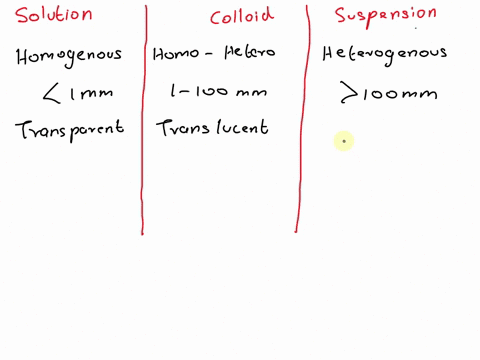 Solution Colloid Suspension
Homogenous Homo - Hetero Heterogenous
< 1mm 1-100 mm >100mm
Transparent Translucent